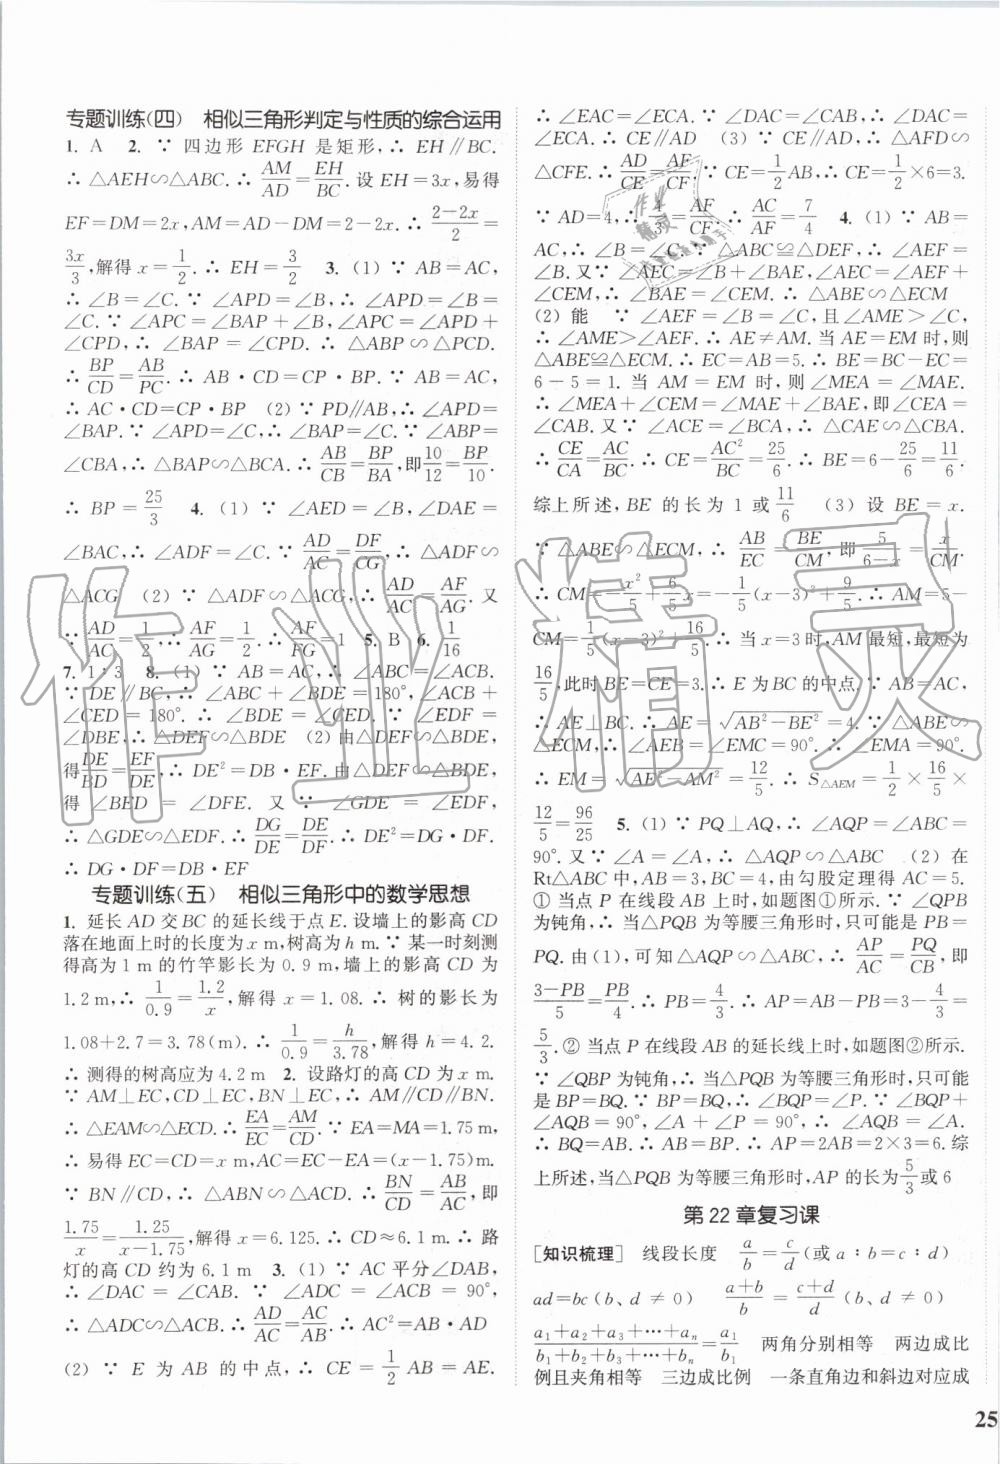 专题训练(四) 相似三角形判定与性质的综合运用
1. A 2. ∵ 四边形 EFGH 是矩形,∴ EH∥BC.
∴ △AEH∽△ABC. ∴ AM/AD=EH/BC. 设 EH=3x,易得
EF=DM=2x,AM=AD-DM=2-2x. ∴ (2-2x)/2=
3x/3,解得 x=1/2. ∴ EH=3/2 3. (1) ∵ AB=AC,
∴ ∠B=∠C. ∵ ∠APD=∠B, ∴ ∠APD=∠B=
∠C. ∵ ∠APC=∠BAP+∠B, ∴ ∠APC=∠APD+
∠CPD, ∴ ∠BAP=∠CPD. ∴ △ABP∽△PCD.
∴ BP/CD=AB/PC. ∴ AB·CD=CP·BP. ∵ AB=AC,
∴ AC·CD=CP·BP (2) ∵ PD∥AB,∴ ∠APD=
∠BAP. ∵ ∠APD=∠C,∴ ∠BAP=∠C. ∵ ∠ABP=
∠CBA,∴ △BAP∽△BCA. ∴ AB/CB=BP/BA,即10/12=BP/10.
∴ BP=25/3 4. (1) ∵ ∠AED=∠B,∠DAE=
∠BAC,∴ ∠ADF=∠C. ∵ AD/AC=DF/CG,∴ △ADF∽
△ACG (2) ∵ △ADF∽△ACG,∴ AD/AC=AF/AG. 又
∵ AD/AC=1/2,∴ AF/AG=1/2. ∴ AF/FG=1 5. B 6. 1/16
7. 1∶3 8. (1) ∵ AB=AC, ∴ ∠ABC=∠ACB.
∵ DE∥BC, ∴ ∠ABC+∠BDE=180°,∠ACB+
∠CED=180°. ∴ ∠BDE=∠CED. ∵ ∠EDF=
∠DBE,∴ △DEF∽△BDE (2) 由△DEF∽△BDE,
得DE/BD=EF/DE,∴ DE²=DB·EF.由△DEF∽△BDE,
得 ∠BED=∠DFE. 又∵ ∠GDE=∠EDF,
∴ △GDE∽△EDF. ∴ DG/DE=DE/DF. ∴ DE²=DG·DF.
∴ DG·DF=DB·EF
专题训练(五) 相似三角形中的数学思想
1. 延长 AD 交 BC 的延长线于点 E. 设墙上的影高 CD
落在地面上时的长度为 x m,树高为 h m. ∵ 某一时刻测
得高为 1 m 的竹竿影长为 0.9 m,墙上的影高 CD 为
1.2 m,∴ 1/0.9=1.2/x,解得 x=1.08. ∴ 树的影长为
1.08+2.7=3.78(m). ∴ 1/0.9=h/3.78,解得 h=4.2.
∴ 测得的树高应为 4.2 m 2. 设路灯的高 CD 为 x m.
∵ AM⊥EC,CD⊥EC,BN⊥EC,∴ AM∥CD∥BN.
∴ △EAM∽△ECD. ∴ EA/EC=AM/CD. ∵ EA=MA=1.75 m,
∴ 易得 EC=CD=x m,AC=EC-EA=(x-1.75)m.
∵ BN∥CD,∴ △ABN∽△ACD. ∴ BN/CD=AB/AC,即
1.75/x=1.25/(x-1.75),解得 x=6.125. ∴ CD≈6.1 m. ∴ 路
灯的高 CD 约为 6.1 m 3. (1) ∵ AC 平分∠DAB,
∴ ∠DAC=∠CAB. ∵ ∠ADC=∠ACB=90°,
∴ △ADC∽△ACB. ∴ AD/AC=AC/AB. ∴ AC²=AB·AD
(2) ∵ E 为 AB 的中点, ∴ CE=1/2 AB=AE.
∴ ∠EAC=∠ECA. ∵ ∠DAC=∠CAB,∴ ∠DAC=
∠ECA. ∴ CE∥AD (3) ∵ CE∥AD,∴ △AFD∽
△CFE. ∴ AD/CE=AF/CF. ∵ CE=1/2AB,∴ CE=1/2×6=3.
∵ AD=4,∴ 4/3=AF/CF. ∴ AC/AF=7/4 4. (1) ∵ AB=
AC,∴ ∠B=∠C. ∵ △ABC≌△DEF,∴ ∠AEF=
∠B. 又∵ ∠AEC=∠B+∠BAE,∠AEC=∠AEF+
∠CEM,∴ ∠BAE=∠CEM. ∴ △ABE∽△ECM
(2) 能 ∵ ∠AEF=∠B=∠C,且∠AME>∠C,
∴ ∠AME>∠AEF. ∴ AE≠AM. 当 AE=EM 时,则
△ABE≌△ECM. ∴ EC=AB=5. ∴ BE=BC-EC=
6-5=1. 当 AM=EM 时,则∠MEA=∠MAE.
∴ ∠MEA+∠CEM=∠MAE+∠BAE,即∠CEA=
∠CAB. 又∵ ∠ACE=∠BCA,∴ △CAE∽△CBA.
∴ CE/CA=AC/BC. ∴ CE=AC²/BC=25/6. ∴ BE=6-25/6=11/6.
综上所述,BE 的长为 1 或11/6 (3) 设 BE=x.
∵ △ABE∽△ECM,∴ AB/EC=BE/CM,即 5/(6-x)=x/CM.
∴ CM=-x²/5+6/5x=-1/5(x-3)²+9/5. ∴ AM=5-
CM=1/5(x-3)²+16/5. ∴ 当 x=3 时,AM 最短,最短为
16/5,此时 BE=CE=3. ∴ E 为 BC 的中点. ∵ AB=AC,
∴ AE⊥BC. ∴ AE=√(AB²-BE²)=4. ∵ △ABE∽
△ECM,∴ ∠AEB=∠EMC=90°. ∴ ∠EMA=90°.
∴ EM=√(AE²-AM²)=12/5. ∴ S△AEM=1/2×16/5×
12/5=96/25 5. (1) ∵ PQ⊥AQ,∴ ∠AQP=∠ABC=
90°. 又∵ ∠A=∠A,∴ △AQP∽△ABC (2) 在
Rt△ABC 中,AB=3,BC=4,由勾股定理得 AC=5.
① 当点 P 在线段 AB 上时,如题图①所示. ∵ ∠QPB
为钝角,∴ 当△PQB 为等腰三角形时,只可能是 PB=
PQ. 由(1),可知△AQP∽△ABC,∴ AP/AC=PQ/CB,即
(3-PB)/5=PB/4. ∴ PB=4/3. ∴ AP=AB-PB=3-4/3=
5/3. ② 当点 P 在线段 AB 的延长线上时,如题图②所示.
∵ ∠QBP 为钝角,∴ 当△PQB 为等腰三角形时,只可能
是 BP=BQ. ∵ BP=BQ,∴ ∠BQP=∠P. ∵ ∠BQP+
∠AQB=90°,∠A+∠P=90°,∴ ∠AQB=∠A.
∴ BQ=AB. ∴ AB=BP. ∴ AP=2AB=2×3=6. 综
上所述,当△PQB 为等腰三角形时,AP 的长为5/3或 6
第 22 章复习课
[知识梳理] 线段长度 a/b=c/d(或 a∶b=c∶d)
ad=bc(b、d≠0) (a+b)/b=(c+d)/d(b、d≠0)
(a₁+a₂+a₃+…+aₙ)/(b₁+b₂+b₃+…+bₙ)=a₁/b₁ 两角分别相等 两边成比
例且夹角相等 三边成比例 一条直角边和斜边对应成
25
作业精灵